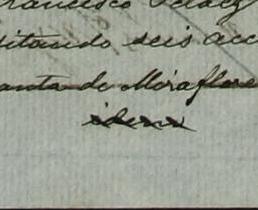 Francisco Pelaez
ditando seis acc
anta de Miraflore
idem